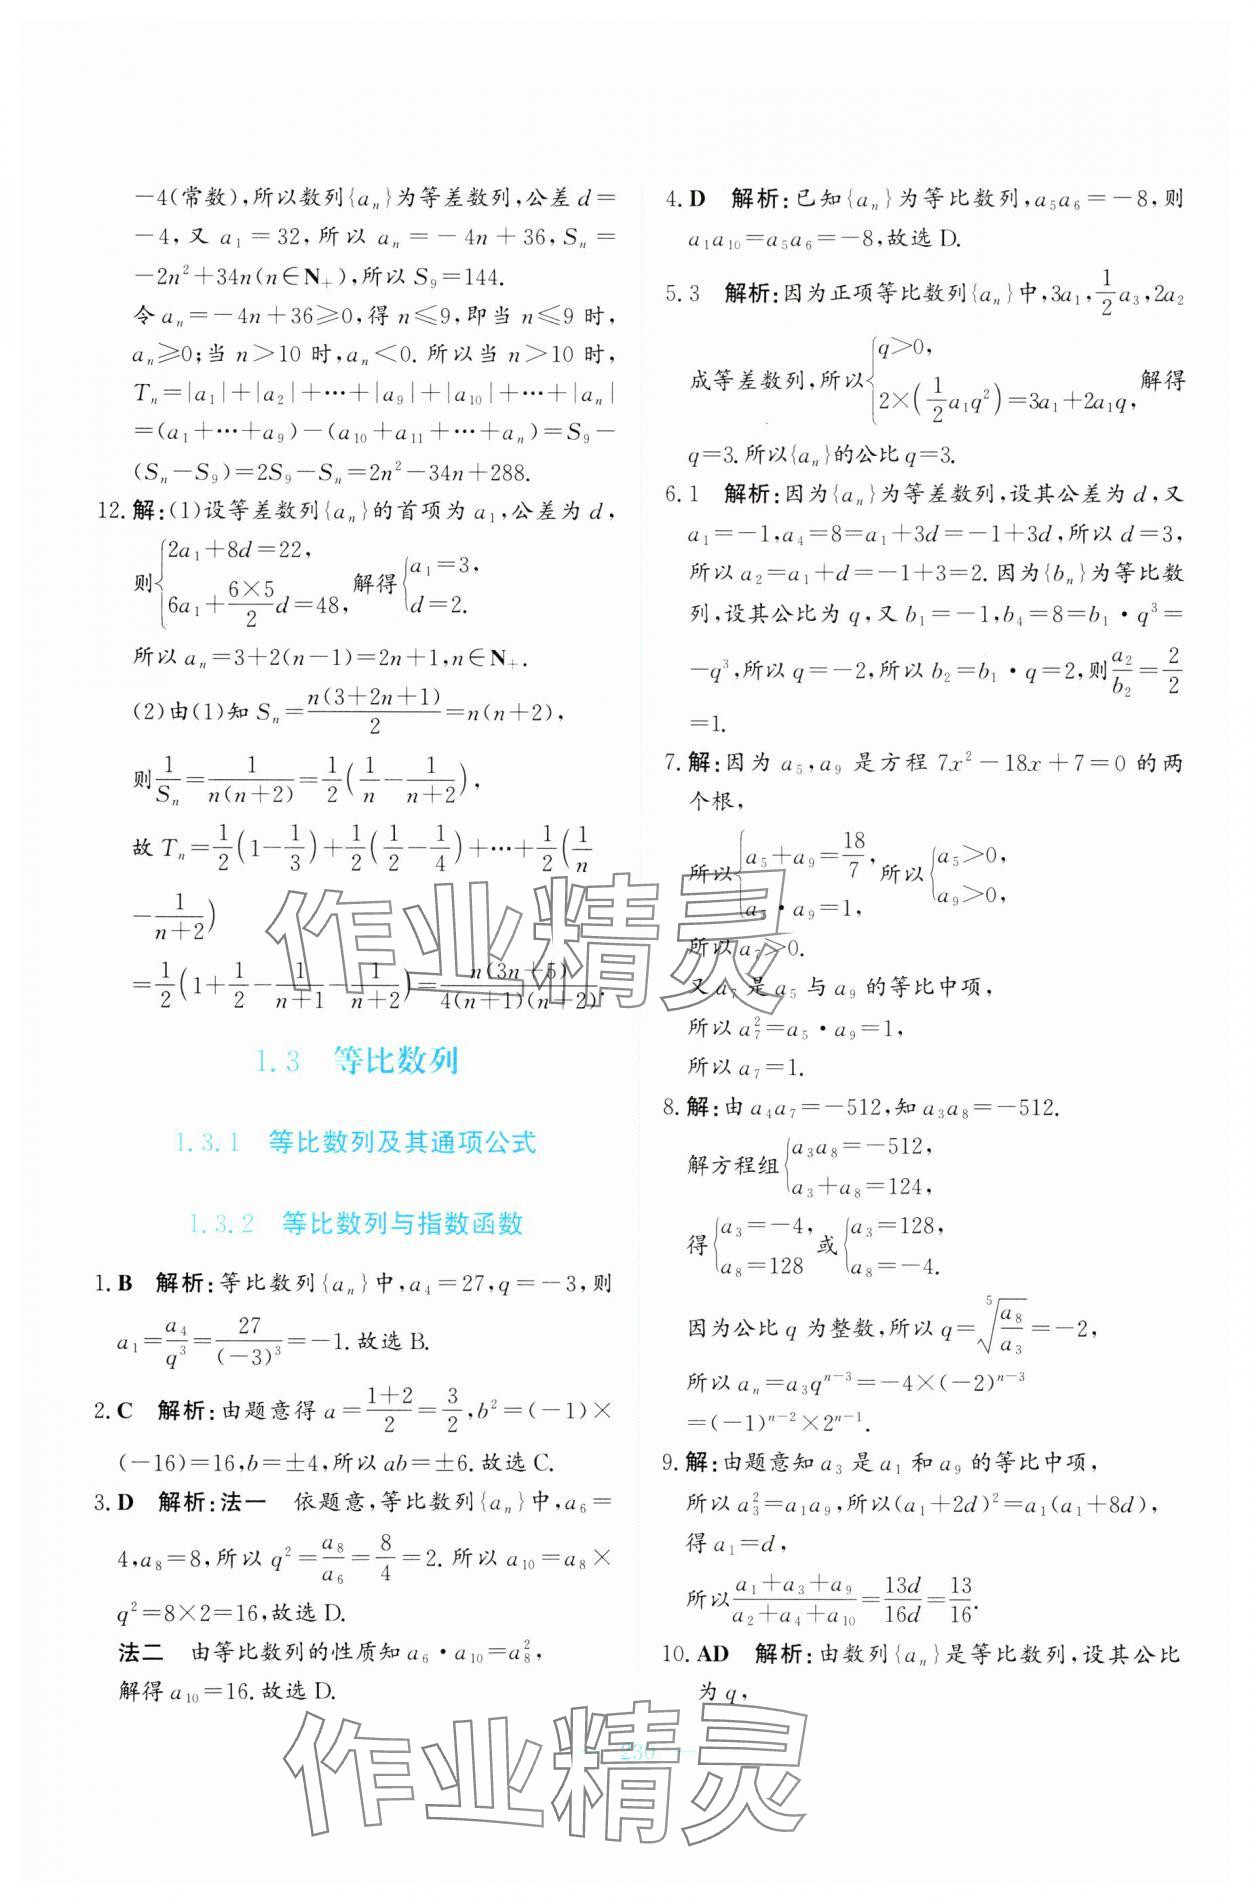 -4(常数),所以数列{aₙ}为等差数列,公差 d=
-4,又 a₁=32,所以 aₙ=-4n+36,Sₙ=
-2n²+34n(n∈N₊),所以 S₉=144.
令 aₙ=-4n+36≥0,得 n≤9,即当 n≤9 时,
aₙ≥0;当 n>10 时,aₙ<0. 所以当 n>10 时,
Tₙ=|a₁|+|a₂|+…+|a₉|+|a₁₀|+…+|aₙ|
=(a₁+…+a₉)-(a₁₀+a₁₁+…+aₙ)=S₉-
(Sₙ-S₉)=2S₉-Sₙ=2n²-34n+288.
12. 解:(1)设等差数列{aₙ}的首项为 a₁,公差为 d,
则{2a₁+8d=22, 6a₁+(6×5)/2 d=48, 解得{a₁=3, d=2.
所以 aₙ=3+2(n-1)=2n+1,n∈N₊.
(2)由(1)知 Sₙ=n(3+2n+1)/2=n(n+2),
则1/Sₙ=1/(n(n+2))=1/2(1/n-1/(n+2)),
故 Tₙ=1/2(1-1/3)+1/2(1/2-1/4)+…+1/2(1/n
-1/(n+2))
=1/2(1+1/2-1/(n+1)-1/(n+2))=n(3n+5)/(4(n+1)(n+2)).
1.3 等比数列
1.3.1 等比数列及其通项公式
1.3.2 等比数列与指数函数
1. B 解析:等比数列{aₙ}中,a₄=27,q=-3,则
a₁=a₄/q³=27/(-3)³=-1.故选 B.
2. C 解析:由题意得 a=(1+2)/2=3/2,b²=(-1)×
(-16)=16,b=±4,所以 ab=±6.故选 C.
3. D 解析:法一 依题意,等比数列{aₙ}中,a₆=
4,a₈=8,所以 q²=a₈/a₆=8/4=2. 所以 a₁₀=a₈×
q²=8×2=16,故选 D.
法二 由等比数列的性质知 a₆·a₁₀=a₈²,
解得 a₁₀=16.故选 D.
4. D 解析:已知{aₙ}为等比数列,a₅a₆=-8,则
a₁a₁₀=a₅a₆=-8,故选 D.
5. 3 解析:因为正项等比数列{aₙ}中,3a₁,1/2a₃,2a₂
成等差数列,所以{q>0, 2×(1/2a₁q²)=3a₁+2a₁q, 解得
q=3.所以{aₙ}的公比 q=3.
6. 1 解析:因为{aₙ}为等差数列,设其公差为 d,又
a₁=-1,a₄=8=a₁+3d=-1+3d,所以 d=3,
所以 a₂=a₁+d=-1+3=2. 因为{bₙ}为等比数
列,设其公比为 q,又 b₁=-1,b₄=8=b₁·q³=
-q³,所以 q=-2,所以 b₂=b₁·q=2,则a₂/b₂=2/2
=1.
7. 解:因为 a₅,a₉ 是方程 7x²-18x+7=0 的两
个根,
所以{a₅+a₉=18/7, a₅·a₉=1, 所以{a₅>0, a₉>0,
所以 a₇>0.
又 a₇ 是 a₅ 与 a₉ 的等比中项,
所以 a₇²=a₅·a₉=1,
所以 a₇=1.
8. 解:由 a₄a₇=-512,知 a₃a₈=-512.
解方程组{a₃a₈=-512, a₃+a₈=124,
得{a₃=-4, a₈=128 或{a₃=128, a₈=-4.
因为公比 q 为整数,所以 q=⁵√(a₈/a₃)=-2,
所以 aₙ=a₃qⁿ⁻³=-4×(-2)ⁿ⁻³
=(-1)ⁿ⁻²×2ⁿ⁻¹.
9. 解:由题意知 a₃ 是 a₁ 和 a₉ 的等比中项,
所以 a₃²=a₁a₉,所以(a₁+2d)²=a₁(a₁+8d),
得 a₁=d,
所以(a₁+a₃+a₉)/(a₂+a₄+a₁₀)=13d/16d=13/16.
10. AD 解析:由数列{aₙ}是等比数列,设其公比
为 q,
— 230 —
作业精灵
作业精灵